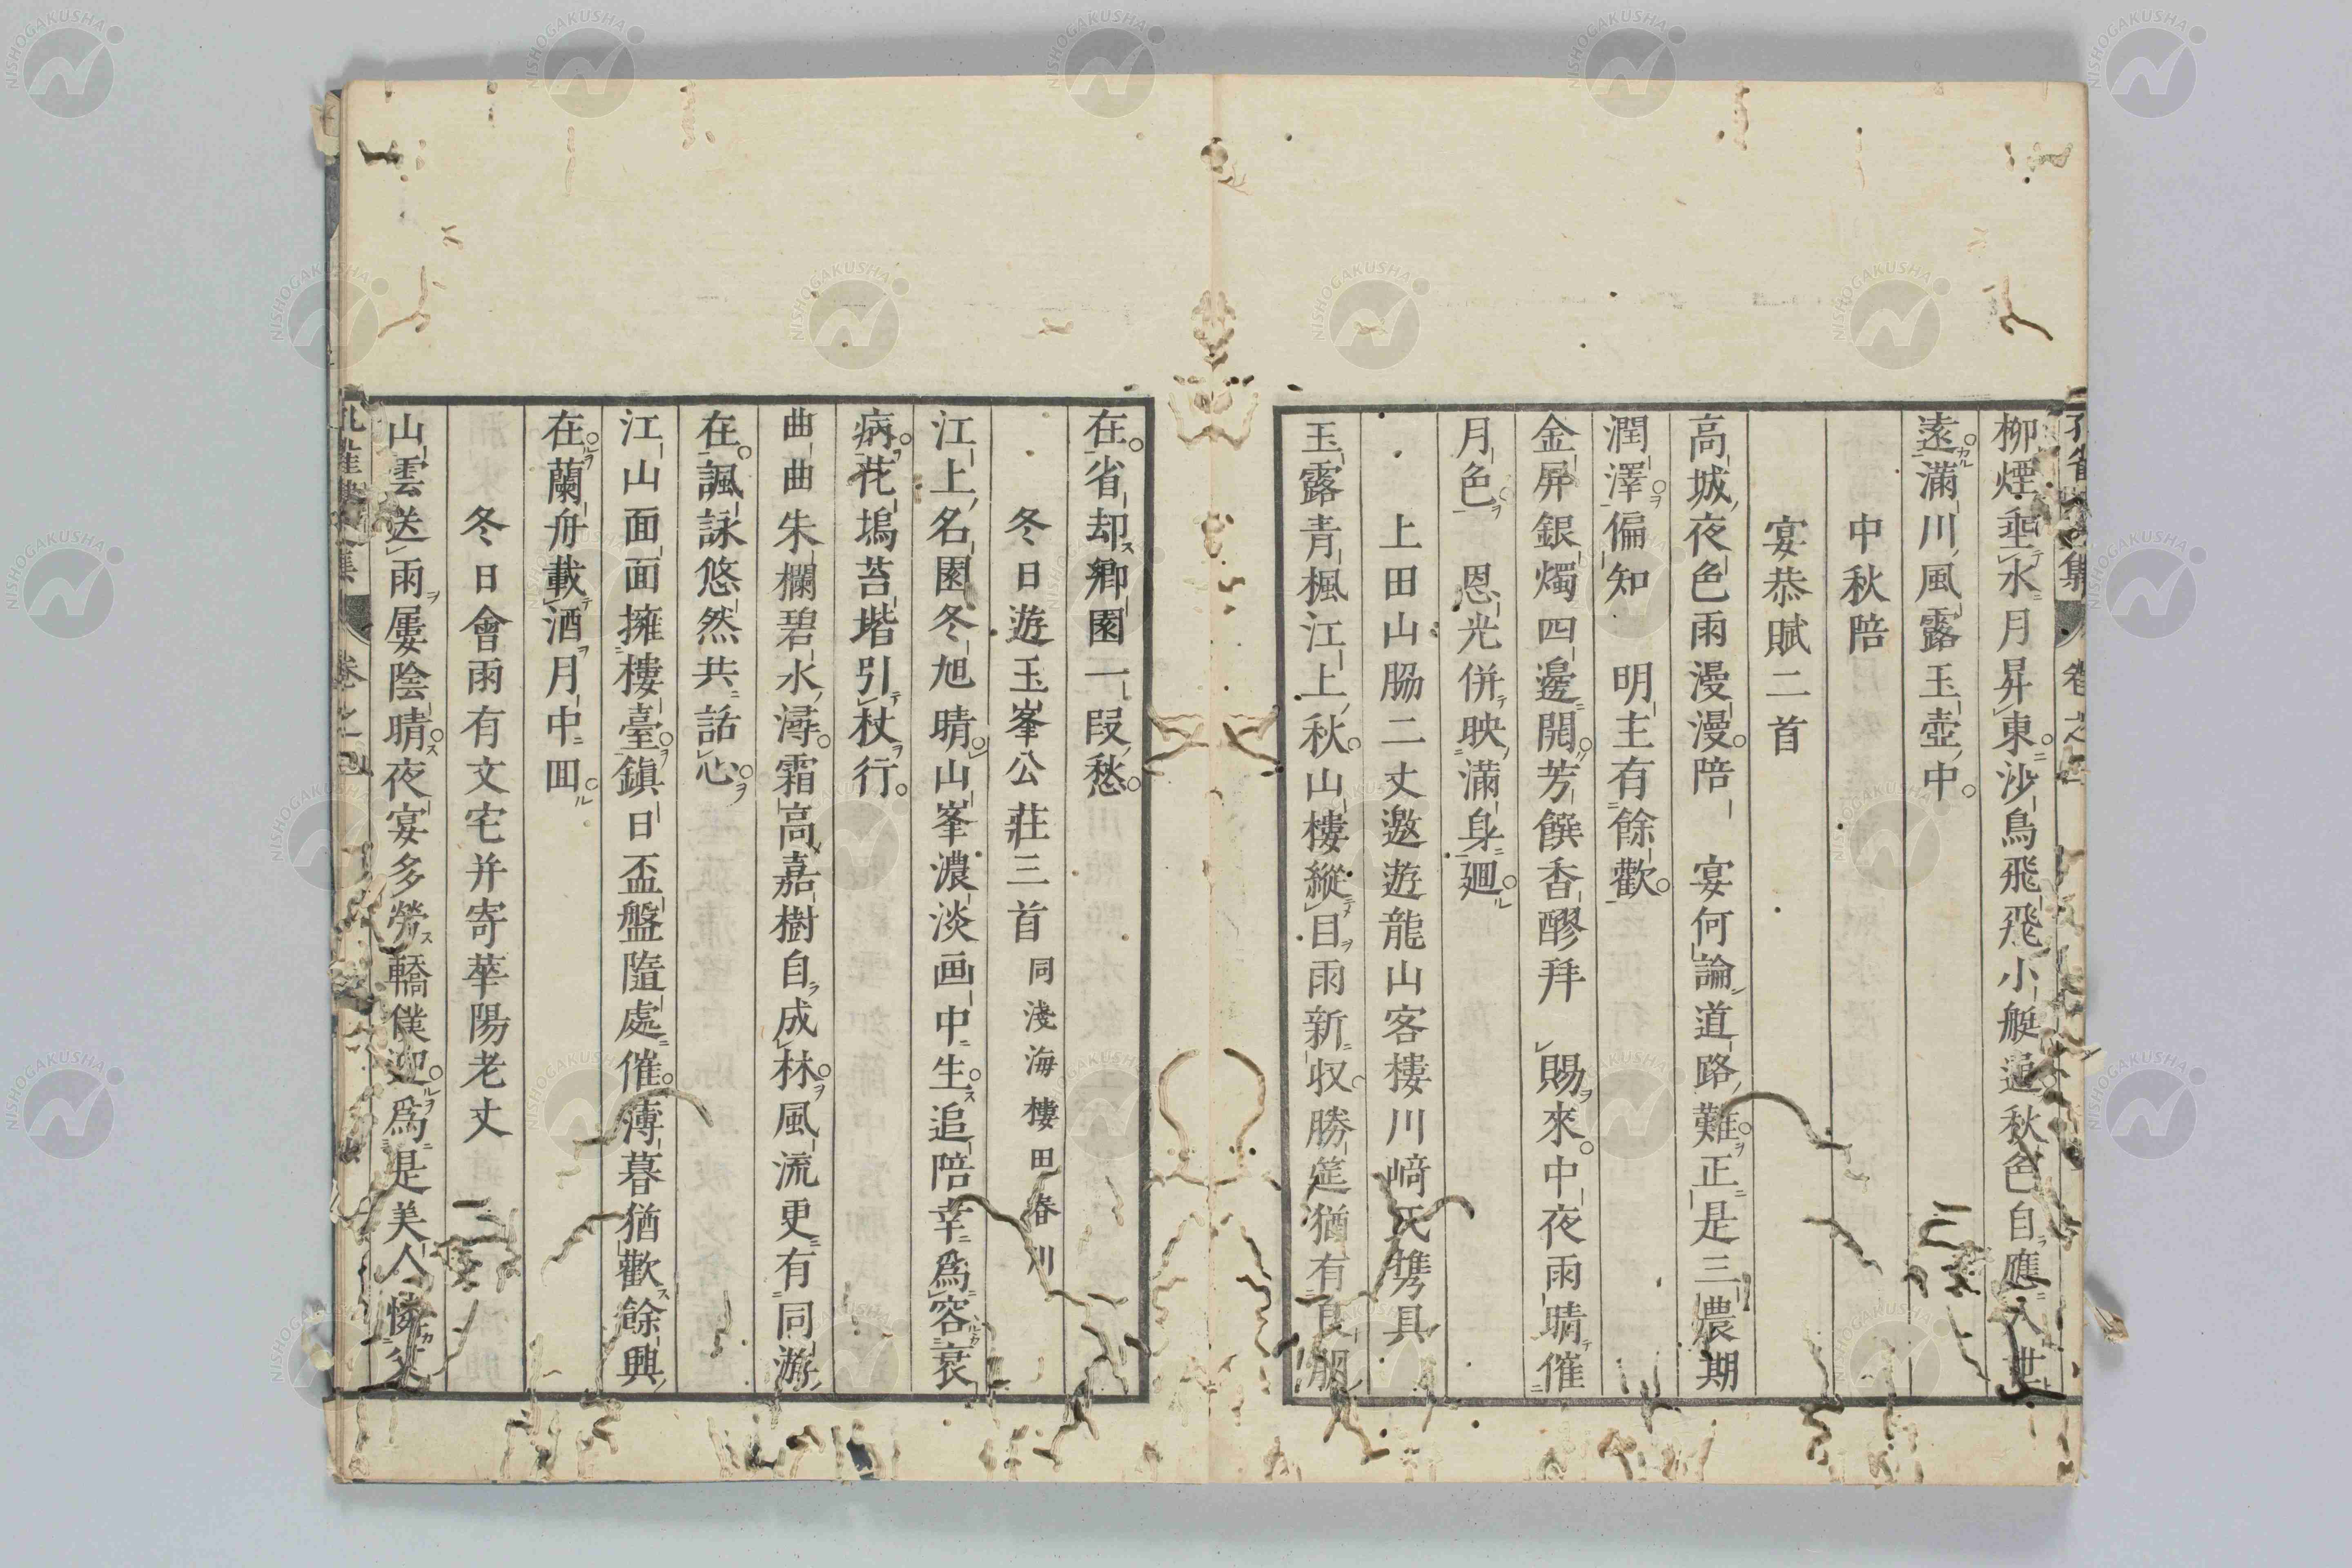 柳煙垂水月昇東沙鳥飛飛小艇通秋色自應人世
遠滿川風露玉壺中
中秋陪
宴恭賦二首
高城夜色雨漫漫陪 宴何論道路難正是三農期
潤澤偏知 明主有餘歡
金屏銀燭四邊開芳饌香醪拜 賜來中夜雨晴催
月色 恩光併映滿身廻
上田山脇二丈邀遊龍山客樓川﨑氏攜具
玉露青楓江上秋山樓縱目雨新収勝筵猶有良朋
在省却鄉園一段愁
冬日遊玉峯公莊三首 同淺海樓田春川
江上名園冬旭晴山峯濃淡画中生追陪幸爲容衰
病花塢苔堦引杖行
曲曲朱欄碧水潯霜高嘉樹自成林風流更有同游
在諷詠悠然共話心
江山面面擁樓臺鎮日盃盤隨處催薄暮猶歡餘興
在蘭舟載酒月中囬
冬日會雨有文宅并寄華陽老丈
山雲送雨屢陰晴夜宴多勞轎僕迎爲是美人憐父
卷之
NISHOGAKUSHA